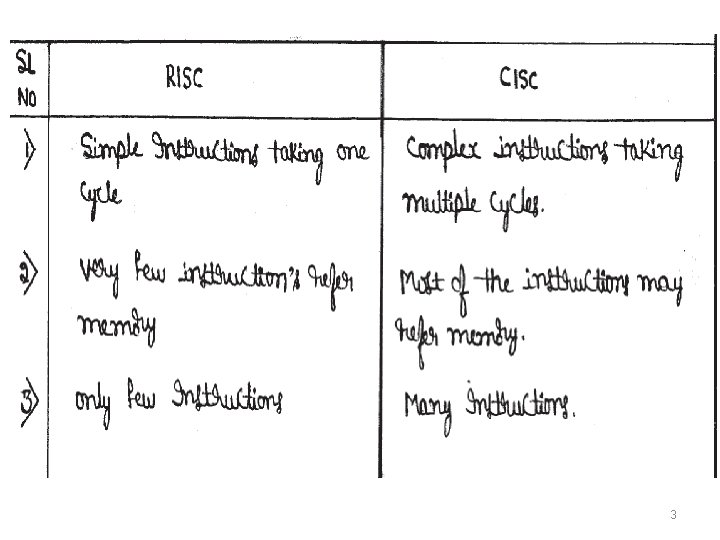 SL NO
RISC
CISC
1)
Simple Instructions taking one
Cycle
Complex instructions taking
multiple cycles.
2)
Very few instruction's refer
memory
Most of the instructions may
refer memory.
3)
only few Instructions
Many Instructions.
3